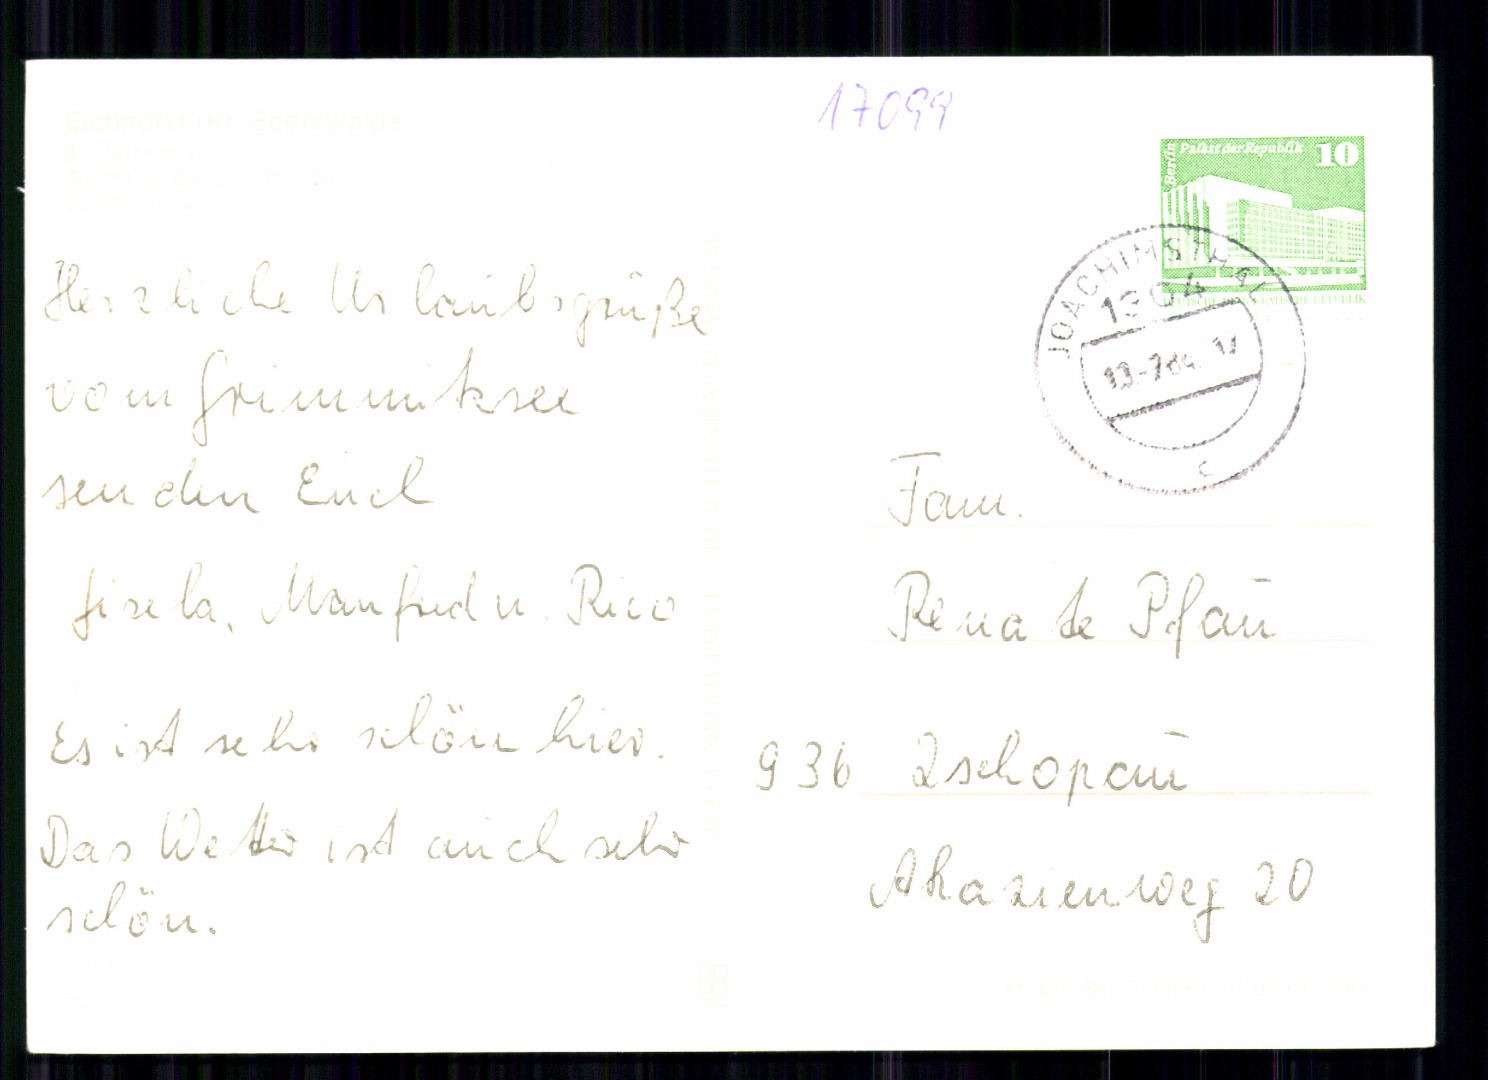 Eichhorst (Kr. Eberswalde)
17099
Berlin
Palast der Republik 10
DEUTSCHE DEMOKRATISCHE REPUBLIK
JOACHIMSTHAL
13-7.84. 17
c
Herzliche Urlaubsgrüße
vom Grimmitksee
senden Euch
Gisela, Manfred u. Rico
Es ist sehr schön hier.
Das Wetter ist auch sehr
schön.
Fam.
Renate Pfaū
936 Zschopaū
Akazienweg 20